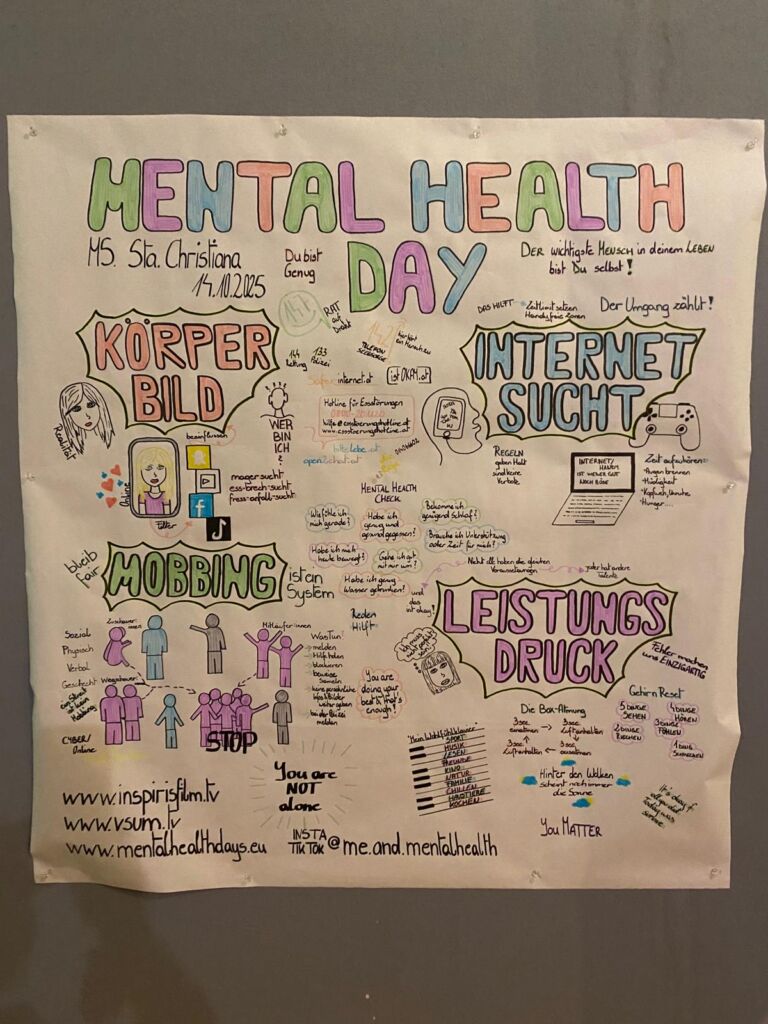 MENTAL HEALTH
DAY
MS. Sta. Christiana
14.10.2025
Du bist
Genug
DER wichtigste MENSCH in deinem LEBEN
bist Du selbst!
DAS HILFT
Zeitlimit setzen
Handyfreie Zonen
Der Umgang zählt!
KÖRPER
BILD
147
RAT
auf
Draht
142
TELEFON
SEELSORGE
144
Rettung
133
Polizei
Saferinternet.at
istOKAY.at
Hotline für Essstörungen
hilfe@essstoerungshotline.at
www.essstoerungshotline.at
bittelebe.at
open2chat.at
INTERNET
SUCHT
Realität
Online
beeinflussen
Filter
WER
BIN
ICH
?
mager-sucht
ess-brech-sucht
fress-anfall-sucht
REGELN
geben Halt
sind keine
Verbote
INTERNET/
HANDY
IST WEDER GUT
NOCH BÖSE
Zeit aufzuhören:
Augen brennen
Müdigkeit
Kopfweh, Unruhe
Hunger....
MENTAL HEALTH
CHECK
Wie fühle ich
mich gerade?
Habe ich
genug und
gesund gegessen?
Bekomme ich
genügend Schlaf?
Brauche ich Unterstützung
oder Zeit für mich?
Habe ich mich
heute bewegt?
Gehe ich gut
mit mir um?
Habe ich genug
Wasser getrunken?
Nicht alle haben die gleichen
Voraussetzungen
jeder hat andere
Talente
und
das
ist okay!
bleib
fair
MOBBING
ist ein
System
Reden
Hilft
Zuschauer:
innen
Mitläufer:innen
Sozial
Physisch
Verbal
Geschlecht
Wegschauer:
innen
ein Streit
ist kein
Mobbing
CYBER/
Online
STOP
Was Tun?
melden
Hilf holen
blockieren
beweise
sameln
keine persönliche
Infos & Bilder
weiter geben
bei der Polizei
melden
You are
doing your
best & that's
enough!
LEISTUNGS
DRUCK
Ich muss
nicht perfekt
sein!
Fehler machen
uns EINZIGARTIG
Die Box-Atmung
3 sec
einatmen
3 sec
Luft anhalten
3 sec
Luft anhalten
3 sec
ausatmen
Gehirn Reset
5 DINGE
SEHEN
4 DINGE
HÖREN
3 DINGE
FÜHLEN
2 DINGE
RIECHEN
1 DING
SCHMECKEN
"Mein Wohlfühlklavier"
SPORT
MUSIK
LESEN
FREUNDE
KINO
NATUR
FAMILIE
CHILLEN
HAUSTIERE
KOCHEN
Hinter den Wolken
scheint noch immer
die Sonne
It's okay if
all you did
today was
survive.
You are
NOT
alone
You MATTER
www.inspirisfilm.tv
www.vsum.tv
www.mentalhealthdays.eu
INSTA
TIKTOK
@me.and.mentalhealth